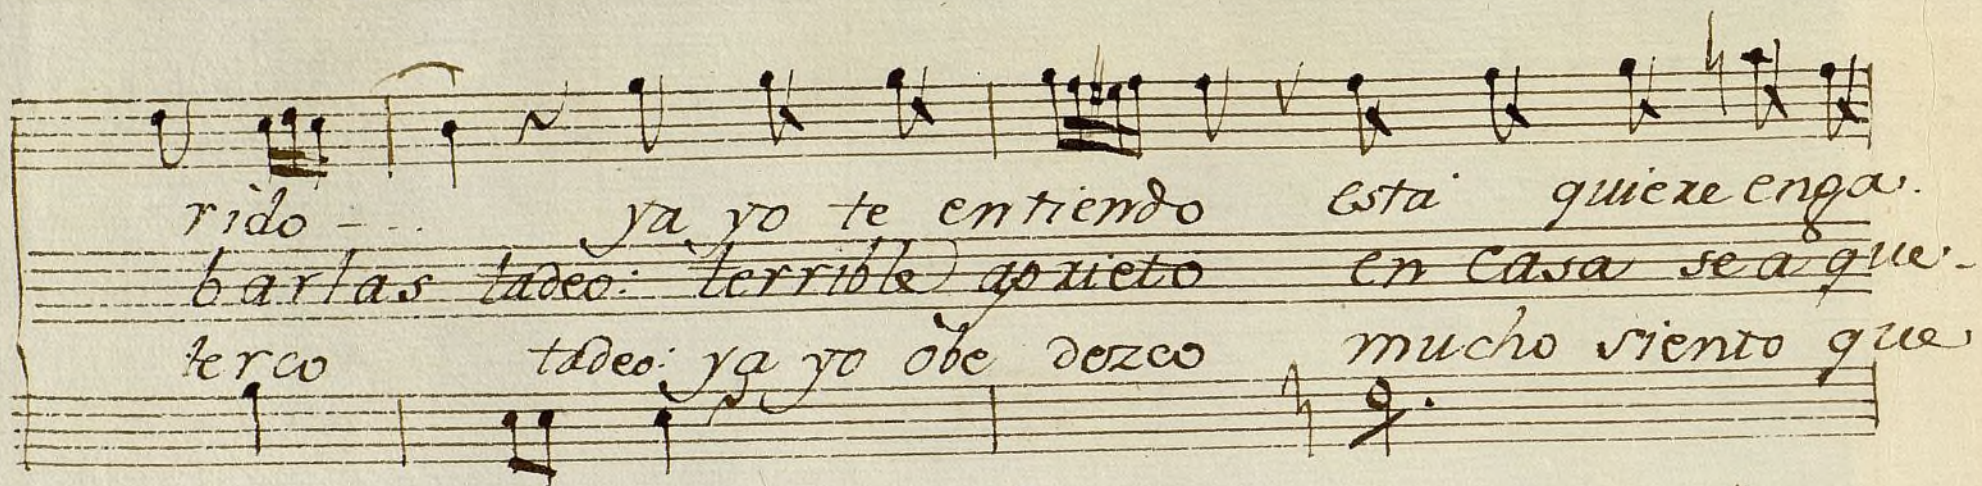 rido - .. ya yo te entiendo esta quiere enga.
barlas tadeo: terrible aprieto en Casa se a que-
terco tadeo: ya yo obe dezco mucho siento que